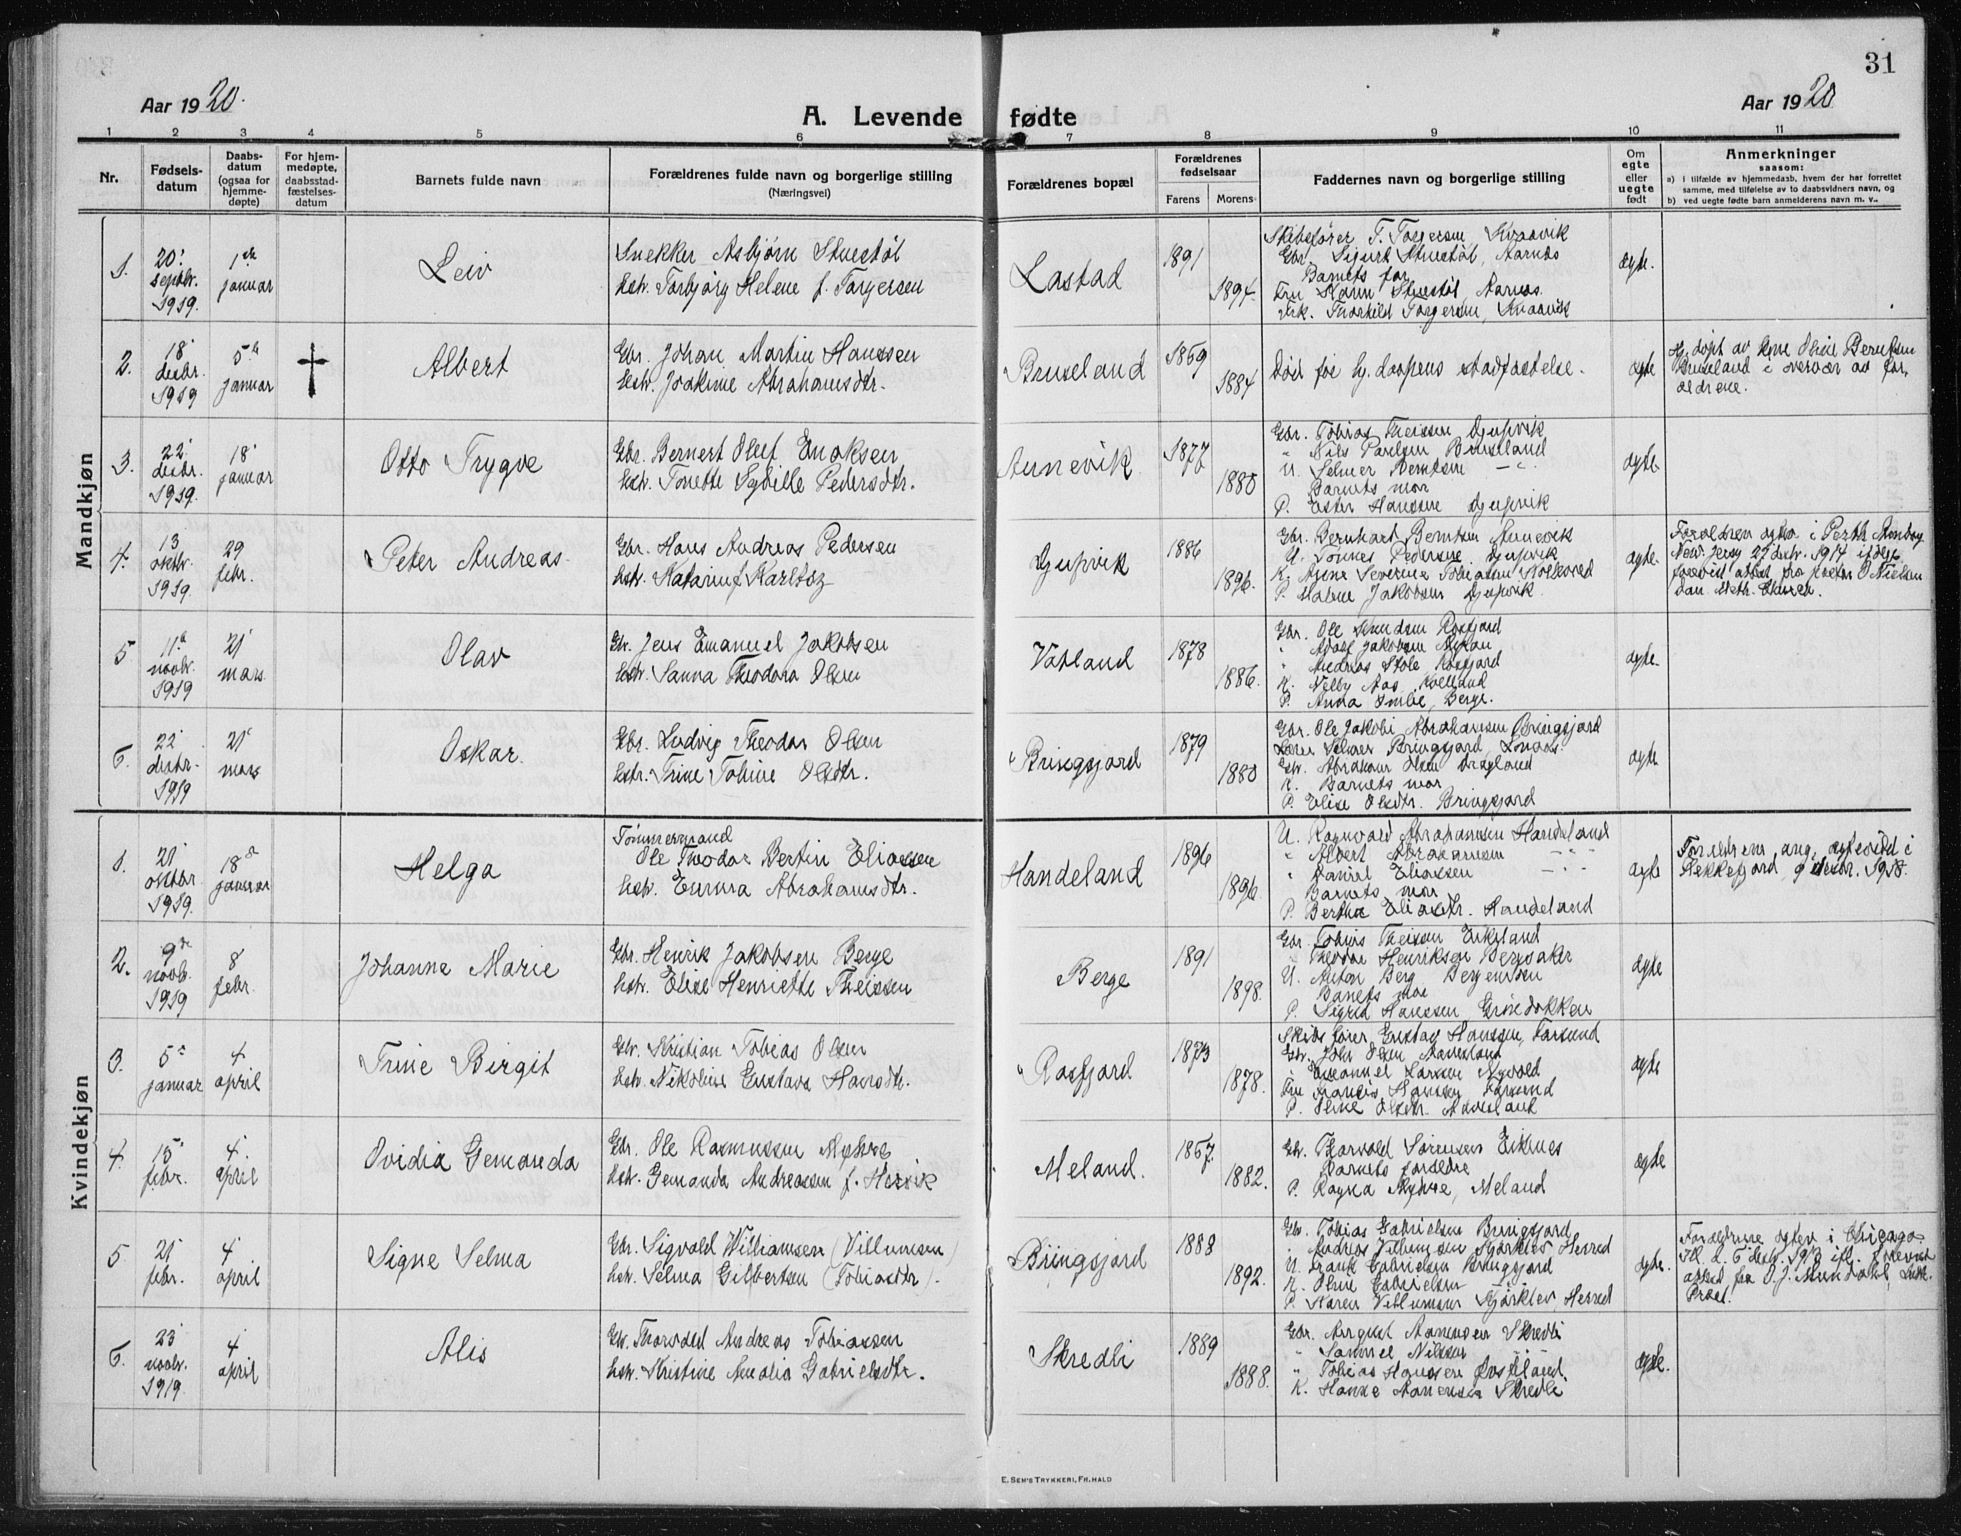 31
Aar 1920.
A. Levende fødte
Aar 1920
1 2 3 4 5 6 7 8 9 10 11
Nr.
Fødsels-
datum
Daabs-
datum
(ogsaa for
hjemme-
døpte)
For hjem-
medøpte,
daabsstad-
fæstelses-
datum
Barnets fulde navn
Forældrenes fulde navn og borgerlige stilling
(Næringsvei)
Forældrenes bopæl
Forældrenes
fødselsaar
Farens Morens
Faddernes navn og borgerlige stilling
Om
egte
eller
uegte
født
Anmerkninger
saasom:
a) i tilfælde av hjemmedaab, hvem der har forrettet
samme, med tilføielse av to daabsvidners navn, og
b) ved uegte fødte barn anmelderens navn m. v..
Mandkjøn
1.
20.
septbr.
1919.
1ste
januar
Leiv
Snekker Asbjørn Stuestøl
hstr. Torbjørg Helene f. Torgersen
Lastad
1891
1894.
Skibsfører T. Torgersen, Kvaavik
Gbr. Sigurt Stuestøl, Aarnes
Barnets far
Fru Karin Stuestøl, Aarnes.
Frk. Thorhild Torgersen, Kvaavik
egte.
2.
18
decbr.
1919
5te
januar
†
Albert
Gbr. Johan Martin Hanssen
hstr. Joakine Abrahamsdtr.
Bruseland
1869
1884
Død før hj. daapens stadfæstelse.
egte
Hj. døpt av
Bruseland i overvær av for,
ældrene.
3.
22
decbr.
1919.
18
januar
Otto Trygve
Gbr. Bernert Oluf Enoksen
hstr. Tonette Sybille Pedersdtr.
Aunevik
1877
1880
Gbr. Tobias Theissen Djupvik
" Nils Paulsen Bruseland
U. Selmer Berntsen - " -
Barnets mor
P. Ester Hanssen Djupvik
egte
4.
13
oktbr.
1919
29
febr.
Peter Andreas
Gbr. Hans Andreas Pedersen
hstr. Katarina f. Karltoz
Djupvik
1886
1896.
Gbr. Bernhart Berntsen Aunevik
U. Tønnes Pedersen Djupvik
K. Anne Severine Tobiassen
P. Malene Jakobsen Djupvik.
egte.
Forældren egtev. i Perth Amboy
New Jersy 27 1914 ifølge
forevist attest fra pastor O Nielsen
dan. Meth.
5
11te
novbr.
1919
21
mars
Olav
Gbr. Jens Emanuel Jakobsen
hstr. Sanna Theodora Olsen
Vatland
1878
1886.
Gbr. Ole Knudsen Rosfjord
" Adolf Jakobsen
" Andreas Stole Rosfjord
K. Nelly Aas,
P. Anna Berge.
egte.
6.
22
decbr.
1919
21
mars
Oskar.
Gbr. Ludvig Theodor Olsen
hstr. Trine Tobine Olsdtr.
Bringsjord
1879
1880
Gbr. Ole Jakobi Abrahamsen Bringsjord
Selmer Bringsjord,
Gbr. Abraham Olsen
K. Barnets mor
P. Elise Olsdtr. Bringsjord
egte
Kvindekjøn
1.
21
oktbr.
1919.
18de
januar
Helga
Tømmermand
Ole Theodor Bertin Eliassen
hstr. Emma Abrahamsdtr.
Handeland
1896
1896.
U. Ragnvald Abrahamsen Handeland
" Albert Abrahamsen - " -
" Daniel Eliassen - " -
Barnets mor
P. Bertha Eliasdtr. Handeland
egte
Forældrene ang. egteviet i
Flekkefjord, 9 decbr. 1918.
2.
9de
novb.
1919
8
febr.
Johanne Marie
Gbr. Henrik Jakobsen Berge
hstr. Elise Henriette Theissen
Berge
1891
1898.
Gbr. Tobias Theisen Eikeland
" Theodor Henriksen Bergsaker
U. Anton Berg
Barnets mor
P. Sigrid Hanssen Grinedokken
egte
3.
5te
januar
4
april
Trine Birgit
Gbr. Kristian Tobias Olsen
hstr. Nikoline Gustava Hansdtr.
Rosfjord
1873
1878.
Skibsfører Gustav Hanssen, Farsund
Gbr. John Olsen
" Emanuel Larssen
Fru Hanssen Farsund
P. Oline Olsdtr.
egte
4.
15
febr.
4.
april
Ovidia Gemanda
Gbr. Ole Rasmussen Myhre
hstr. Gemanda Andreassen f. Hervik
Meland.
1867.
1882.
Gbr. Thorvald Sørensen Eiknes
Barnets forældre
P. Ragna Myhre, Meland
egte
5
21
febr.
4
april
Signe Selma
Gbr. Sigvald Williamsen (Villumsen)
hstr. Selma Gilbertsen (Tobiasdtr).
Bringsjord
1888
1892.
Gbr. Tobias Gabrielsen Bringsjord
" Andreas Villumsen Herred
U. Frank Gabrielsen Bringsjord
K. Oline Gabrielsen - " -
P. Karen Villumsen Herred
egte.
Forældrene egtev i Chicago
Ill. d. 6 1913 ifl. forevist
attest fra O. J. Luth.
Præst.
6.
23
novbr.
1919.
4
april
Alis
Gbr. Thorvald Andreas Tobiassen
hstr. Kristine Amalia Gabrielsdtr.
Skredli
1889
1888.
Gbr. August Aanensen Skredli
" Samuel Nilssen - " -
" Tobias Hanssen
K. Hanse Aanensen Skredli
egte.
E. Sem's Trykkeri, Fr.hald